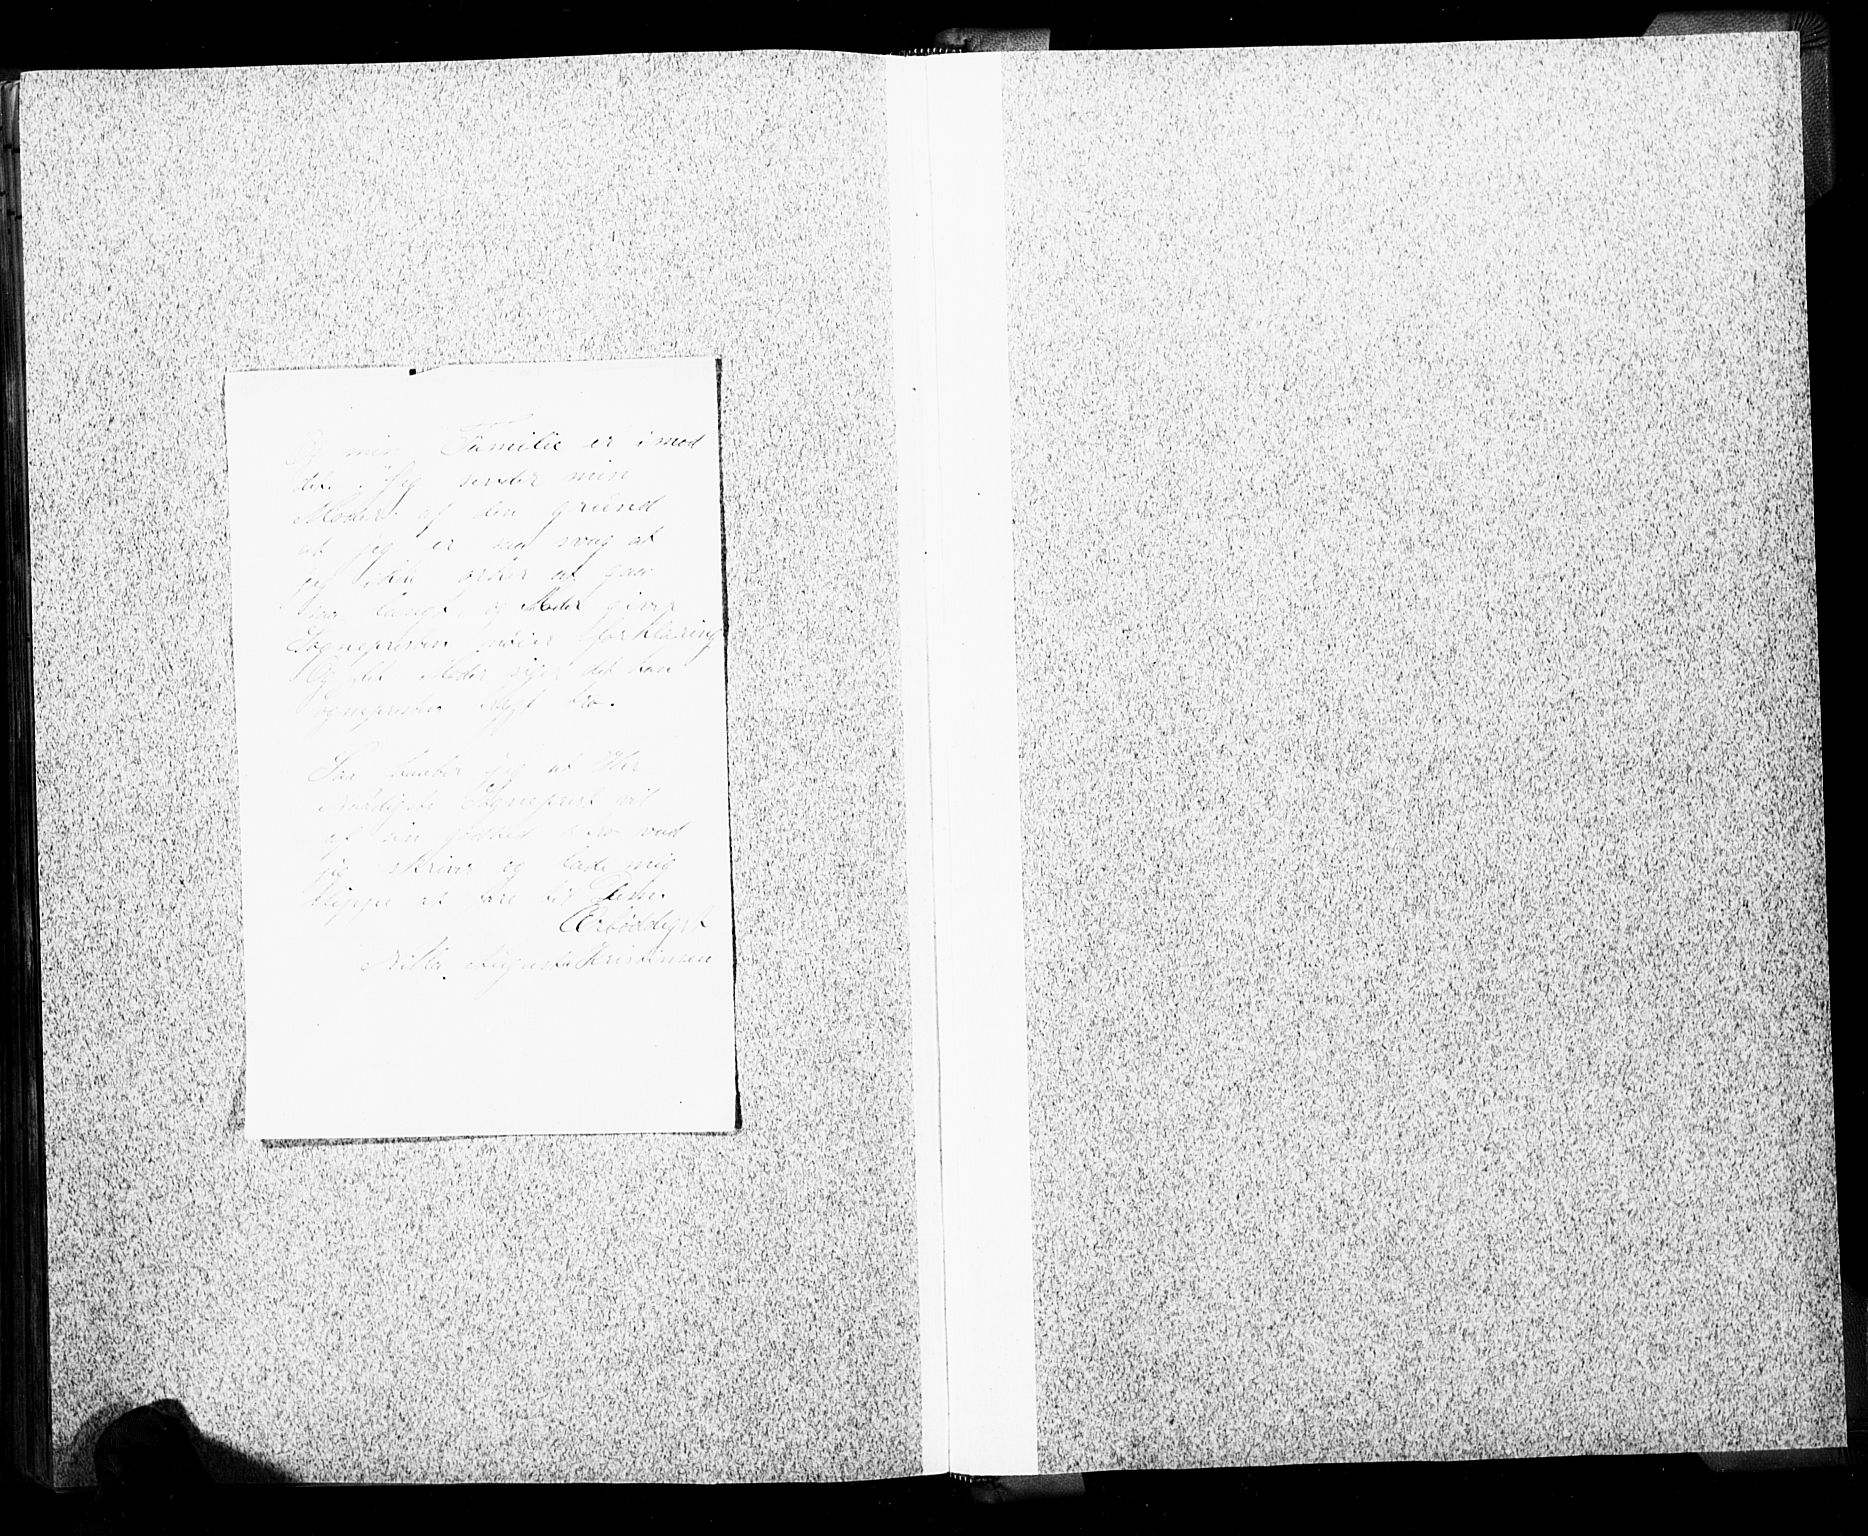 Og min Familie er imod
det. Jeg sender min
Moder af den grund
at jeg er saa svag at
jeg ikke orker at gaa
saa langt, og Moder giver
Sognepresten forklaring
Og det Moder siger det kan
Sognepresten trygt tro.
Saa haaber jeg at Her
Sogneprest vil
af sin godhed tro vad
jeg skriver og lade mig
slippe at fare til Dem.
Ærbødigst
Milla Augusta Kristensen